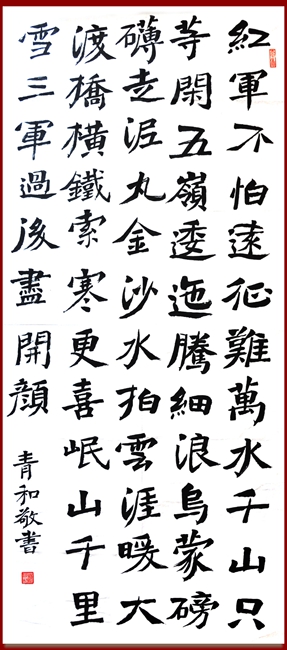 紅軍不怕遠征難萬水千山只
等閑五嶺逶迤騰細浪烏蒙磅
礴走泥丸金沙水拍雲涯暖大
渡橋橫鐵索寒更喜岷山千里
雪三軍過後盡開顏
青和敬書